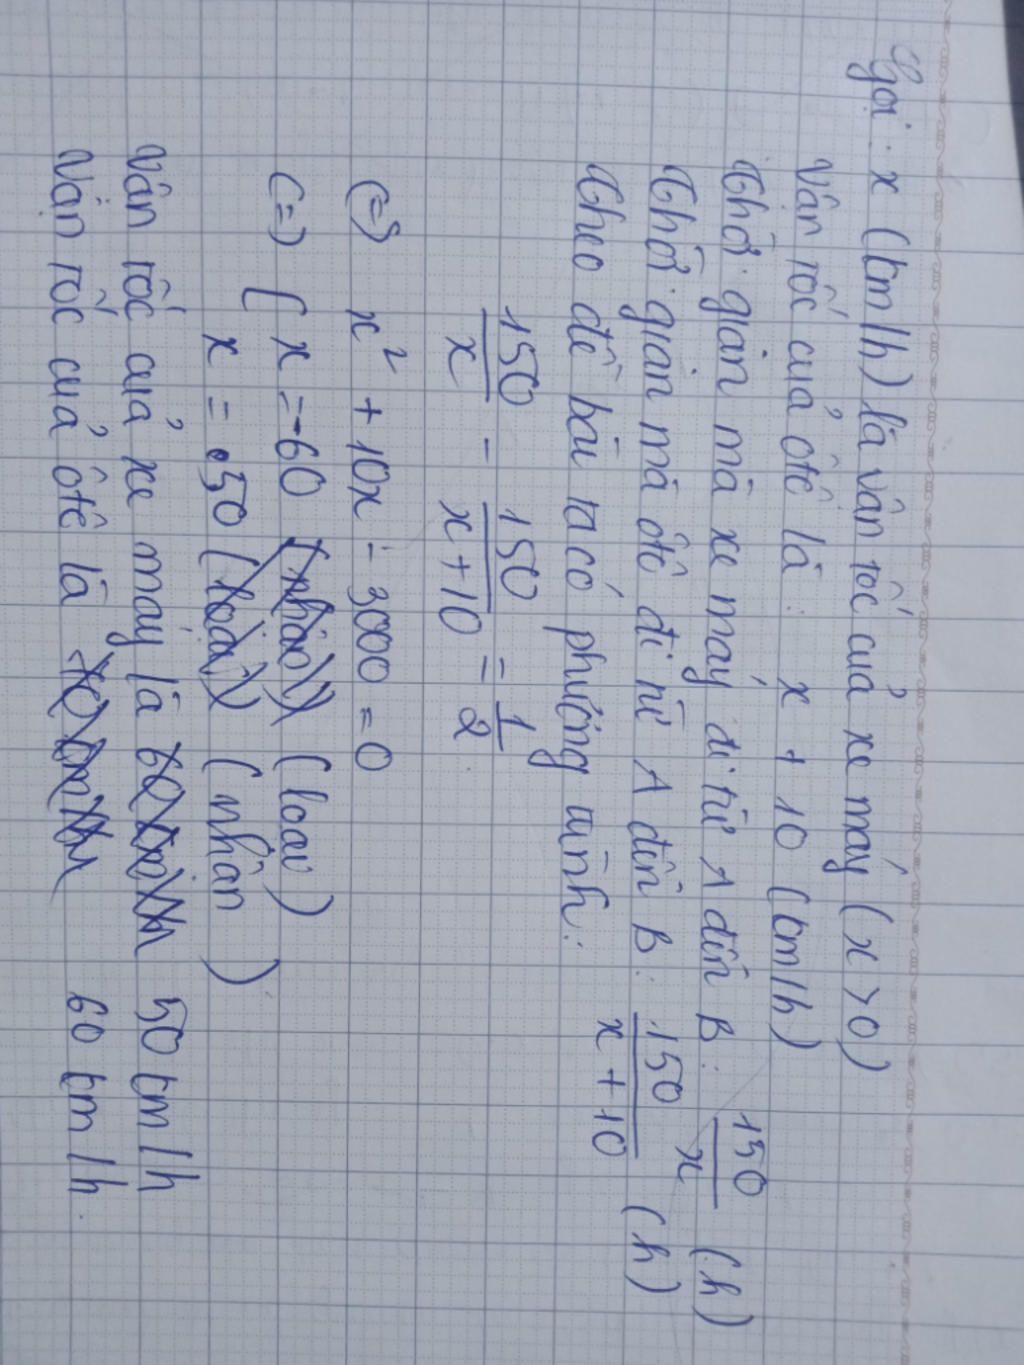 Gọi: x (km/h) là vận tốc của xe máy (x > 0)
Vận tốc của ôtô là: x + 10 (km/h)
Thời gian mà xe máy đi từ A đến B: 150/x (h)
Thời gian mà ôtô đi từ A đến B: 150/(x + 10) (h)
Theo đề bài ta có phương trình:
150/x - 150/(x+10) = 1/2
(=) x² + 10x - 3000 = 0
(=) [ x = -60 (loại)
x = 50 (nhận)
Vận tốc của xe máy là 50 km/h
Vận tốc của ôtô là 60 km/h.